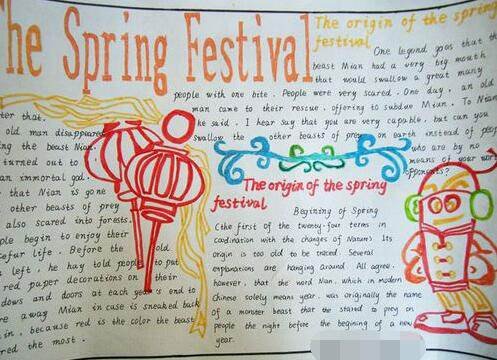 he Spring Festival
The origin of the spring
festival
One legend goes that th
beast Nian had a very big mouth
that would swallow a great many
people with one bite. People were very scared. One day, an old
man came to their rescue, offering to subdue Nian. To Nian
he said. I hear say that you are very capable, but can you
swallow the other beasts of prey on earth instead of peop
who are by no
means of your wor
opponents?
ter that.
old man disappeared
ing the beast Nian.
turned out to
an immortal god.
that Nian is gone
other beasts of prey
also scared into forests.
ple begin to enjoy their
ceful life. Before the old
left, he hay told people to put
red paper decorations on their
dows and doors at each year's end to
re away Mian in case is sneaked back
in, because red is the color the beast
red the most.
The origin of the spring
festival
Beginning of Spring
(the first of the twenty-four terms in
Coordination with the changes of Nature) Its
origin is too old to be traced. Several
explanations are hanging around. All agree,
however, that the word Nian, which in modern
Chinese solely means year, was originally the name
of a monster beast that the stared to prey on
people the night before the begining of a new
year.